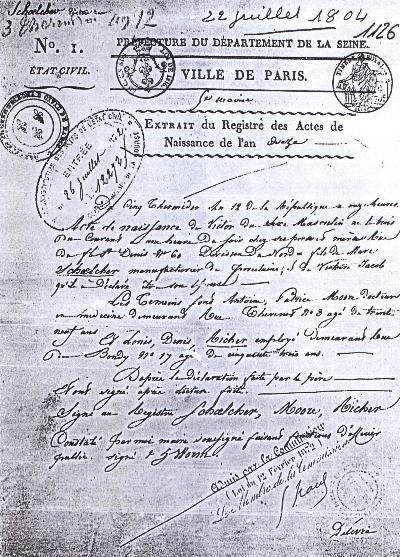 Schœlcher
22 juillet 1804
1126
N°. 1.
PRÉFECTURE DU DÉPARTEMENT DE LA SEINE.
ÉTAT CIVIL.
VILLE DE PARIS.
5e mairie
EXTRAIT du Registre des Actes de
Naissance de l'an douze
ENTRÉE
26 juillet
Du cinq Thermidor an 12 de la République à onze heures.
Acte de naissance de Victor du sexe Masculin né le trois
du Courant à une heure du soir chez ses père et mère rue
du fb. St Denis N° 60 Division du Nord fils de Marc
Schœlcher manufacturier de Porcelaine, & de Victoire Jacob
qu'il a déclaré
Les Témoins sont Antoine, Patrice Moore docteur
en médecine demeurant Rue Thévenot N° 3 âgé de trente
neuf ans
Et Louis, Denis, Richer employé demeurant Rue
de Bondy N° 17 âgé de cinquante trois ans.
D'après la déclaration faite par le père
Et ont signé après lecture faite.
Signé au Registre Schœlcher, Moore, Richer
Constaté par moi maire soussigné faisant fonctions d'officier
public. signé
Admis par la Commission
(Loi du 12 Février 1872)
Le Membre de la Commission
Délivré